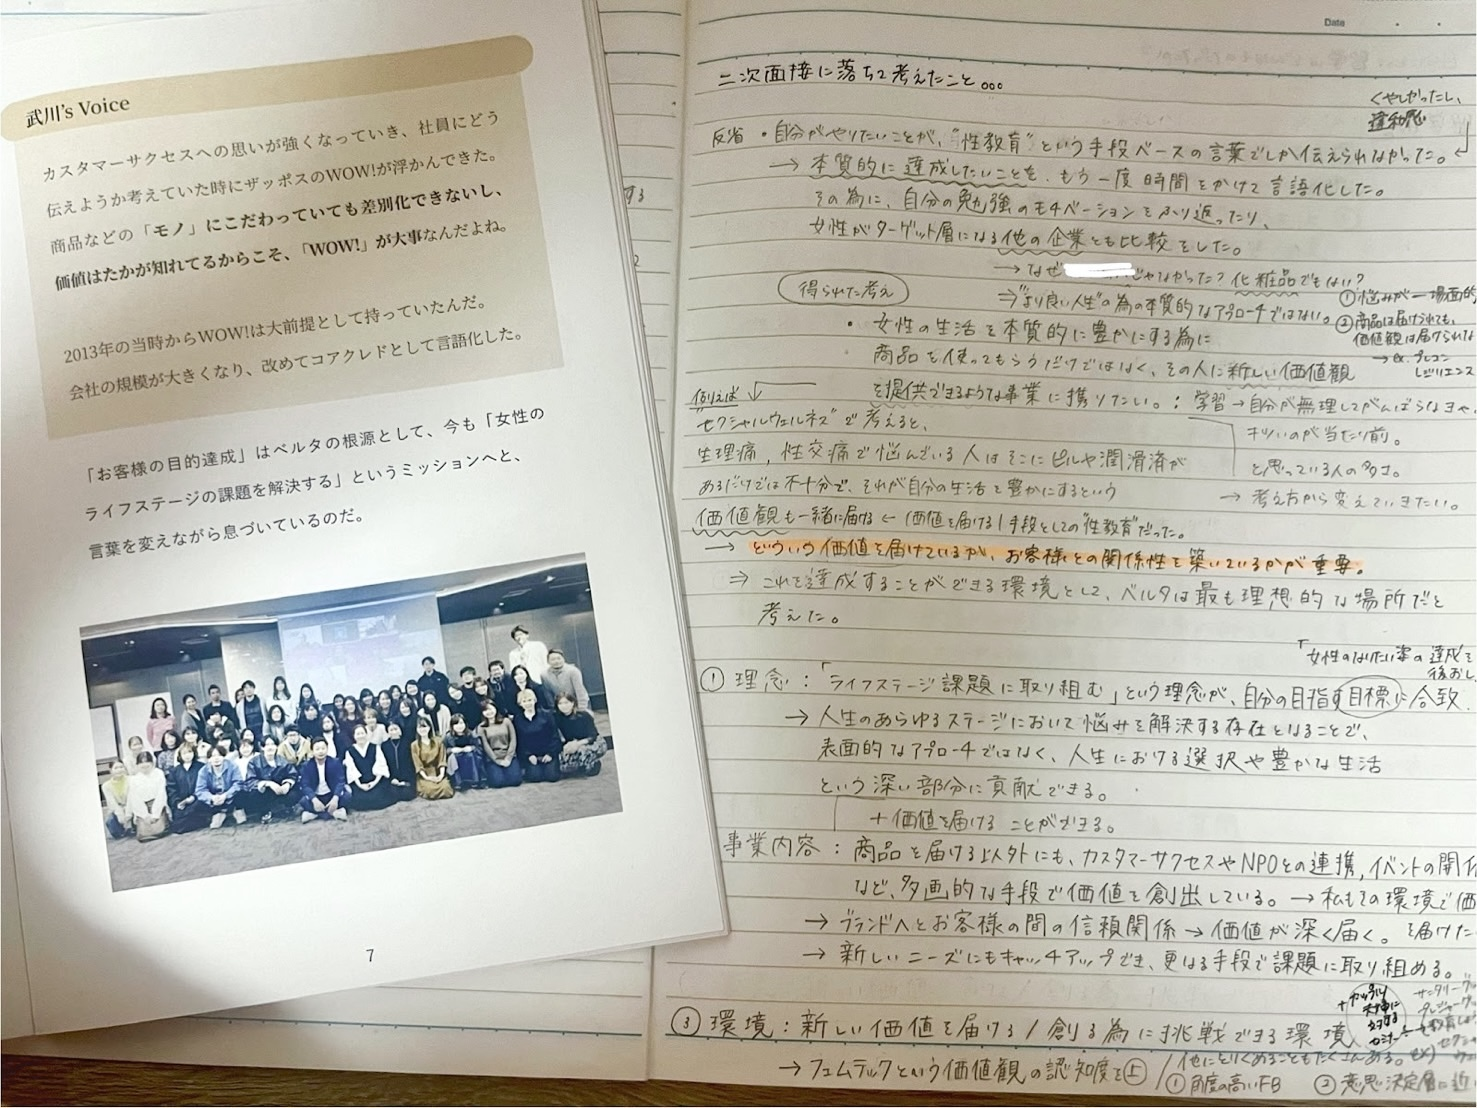 武川's Voice
カスタマーサクセスへの思いが強くなっていき、社員にどう
伝えようか考えていた時にザッポスのWOW!が浮かんできた。
商品などの「モノ」にこだわっていても差別化できないし、
価値はたかが知れてるからこそ、「WOW!」が大事なんだよね。
2013年の当時からWOW!は大前提として持っていたんだ。
会社の規模が大きくなり、改めてコアクレドとして言語化した。
「お客様の目的達成」はベルタの根源として、今も「女性の
ライフステージの課題を解決する」というミッションへと、
言葉を変えながら息づいているのだ。
7
Date
二次面接に落ちて考えたこと...
くやしかったし、
違和感
反省・自分がやりたいことが、"性教育"という手段ベースの言葉でしか伝えられなかった。
→ 本質的に達成したいことを、もう一度時間をかけて言語化した。
その為に、自分の勉強のモチベーションをふり返ったり、
女性がターゲット層になる他の企業とも比較をした。
→ なぜ じゃなかった? 化粧品でもない?
⇒"より良い人生"の為の本質的なアプローチではない。
①悩みが一場面的
②商品は届けられても、
価値観は届けられな
→ ex. プレコン
得られた考え
・女性の生活を本質的に豊かにする為に
商品を使ってもらうだけではなく、その人に新しい価値観
を提供できるような事業に携りたい。: 学習→自分が無理してがんばらなきゃ、
キツいのが当たり前。
と思っている人の多さ。
→ 考え方から変えていきたい。
例えば
"セクシャルウェルネス"で考えると、
生理痛、性交痛で悩んでいる人はそこにピルや潤滑済が
あるだけでは不十分で、それが自分の生活を豊かにするという
価値観も一緒に届ける ← 価値を届ける1手段としての"性教育"だった。
→ どういう価値を届けているか、お客様との関係性を築いているかが重要。
⇒ これを達成することができる環境として、ベルタは最も理想的な場所だと
考えた。
「女性のなりたい姿の達成を
後おし
① 理念:「ライフステージ課題に取り組む」という理念が、自分の目指す目標に合致.
→ 人生のあらゆるステージにおいて悩みを解決する存在となることで、
表面的なアプローチではなく、人生における選択や豊かな生活
という深い部分に貢献できる。
+ 価値を届けることができる。
事業内容: 商品を届ける以外にも、カスタマーサクセスやNPOとの連携,イベントの開催
など、多画的な手段で価値を創出している。→ 私もその環境で価
→ ブランドへとお客様の間の信頼関係→価値が深く届く。を届けた
→ 新しいニーズにもキャッチアップでき、更なる手段で課題に取り組める。
③ 環境: 新しい価値を届ける/創る為に挑戦できる環境
→ フェムテックという価値観の認知度を上
①角度の高いFB ②意思決定層に近